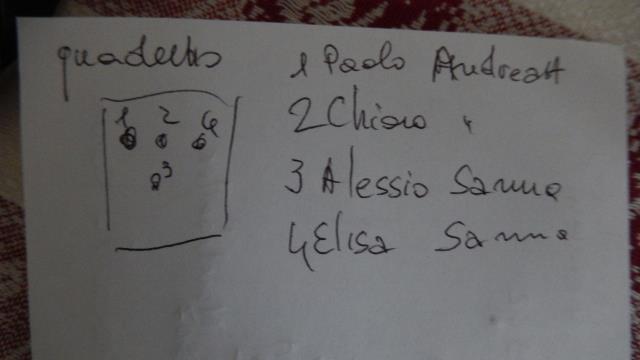 quadretto
1 Paolo Andreatt
2 Chiara "
3 Alessio Sanna
4 Elisa Sanna
1 2 4
3